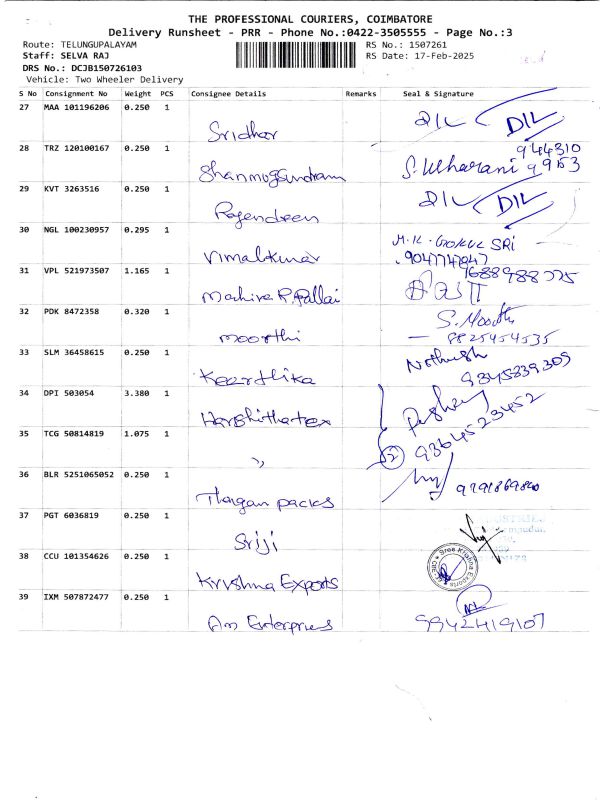 THE PROFESSIONAL COURIERS, COIMBATORE
Delivery Runsheet - PRR - Phone No.:0422-3505555 - Page No.:3
Route: TELUNGUPALAYAM RS No.: 1507261
Staff: SELVA RAJ RS Date: 17-Feb-2025
DRS No.: DCJB150726103
Vehicle: Two Wheeler Delivery
S No Consignment No Weight PCS Consignee Details Remarks Seal & Signature
27 MAA 101196206 0.250 1
Sridhar DIL DIL
28 TRZ 120100167 0.250 1 944310
Shanmugsundram S. Utharani 99153
29 KVT 3263516 0.250 1
Rajendren DIL DIL
30 NGL 100230957 0.295 1 M.K. GOKUL SRI
Vimalkumar 9047747847
31 VPL 521973507 1.165 1
32 PDK 8472358 0.320 1 S. Moorthi
moorthi 8825454535
33 SLM 36458615 0.250 1
Keerthika 9345839305
34 DPI 503054 3.380 1
Harshithatex 9364523452
35 TCG 50814819 1.075 1
〃 2
36 BLR 5251065052 0.250 1
Thangan packs
37 PGT 6036819 0.250 1
Sriji
38 CCU 101354626 0.250 1 Sree Krishna Exports
Krishna Exports
39 IXM 507872477 0.250 1
Am Enterprises 9942419107